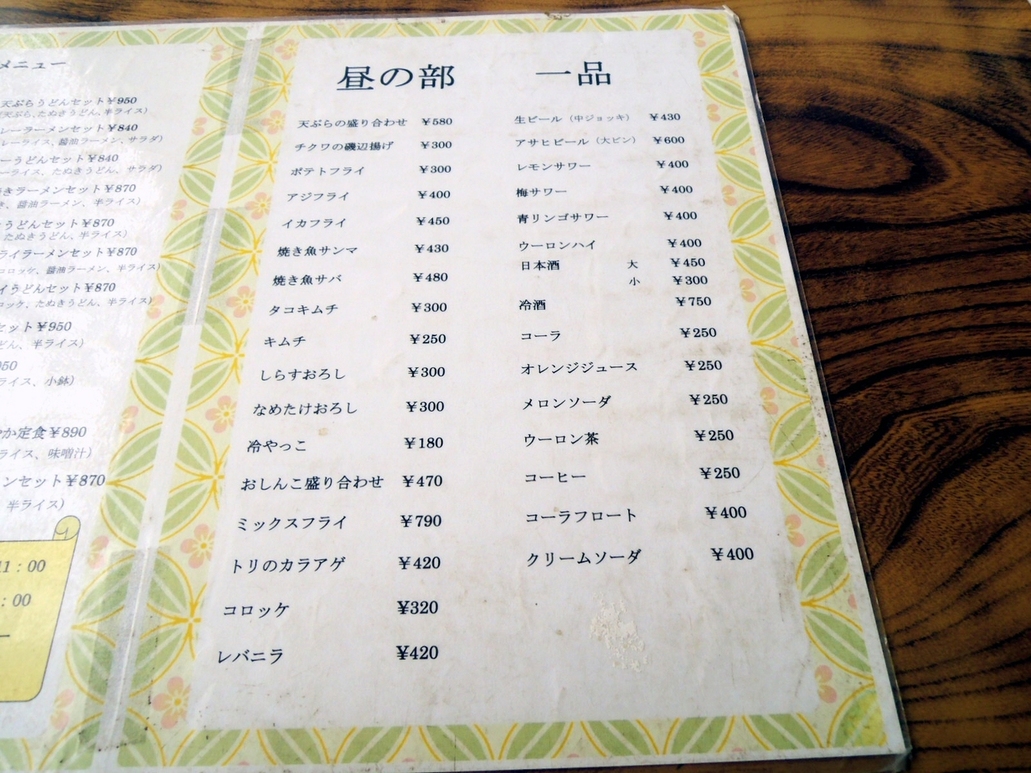 メニュー
天ぷらうどんセット¥950
天ぷら、たぬきうどん、半ライス）
レーラーメンセット¥840
レーライス、醤油ラーメン、サラダ）
ーうどんセット¥840
ーライス、たぬきうどん、サラダ）
きラーメンセット¥870
き、醤油ラーメン、半ライス）
うどんセット¥870
たぬきうどん、半ライス）
ライラーメンセット¥870
コロッケ、醤油ラーメン、半ライス）
イうどんセット¥870
ロッケ、たぬきうどん、半ライス）
セット¥950
どん、半ライス）
950
ライス、小鉢）
か定食¥890
ライス、味噌汁）
ンセット¥870
半ライス）
11：00
：00
昼の部 一品
天ぷらの盛り合わせ ¥580
チクワの磯辺揚げ ¥300
ポテトフライ ¥300
アジフライ ¥400
イカフライ ¥450
焼き魚サンマ ¥430
焼き魚サバ ¥480
タコキムチ ¥300
キムチ ¥250
しらすおろし ¥300
なめたけおろし ¥300
冷やっこ ¥180
おしんこ盛り合わせ ¥470
ミックスフライ ¥790
トリのカラアゲ ¥420
コロッケ ¥320
レバニラ ¥420
生ビール（中ジョッキ） ¥430
アサヒビール（大ビン） ¥600
レモンサワー ¥400
梅サワー ¥400
青リンゴサワー ¥400
ウーロンハイ ¥400
日本酒 大 ¥450
小 ¥300
冷酒 ¥750
コーラ ¥250
オレンジジュース ¥250
メロンソーダ ¥250
ウーロン茶 ¥250
コーヒー ¥250
コーラフロート ¥400
クリームソーダ ¥400